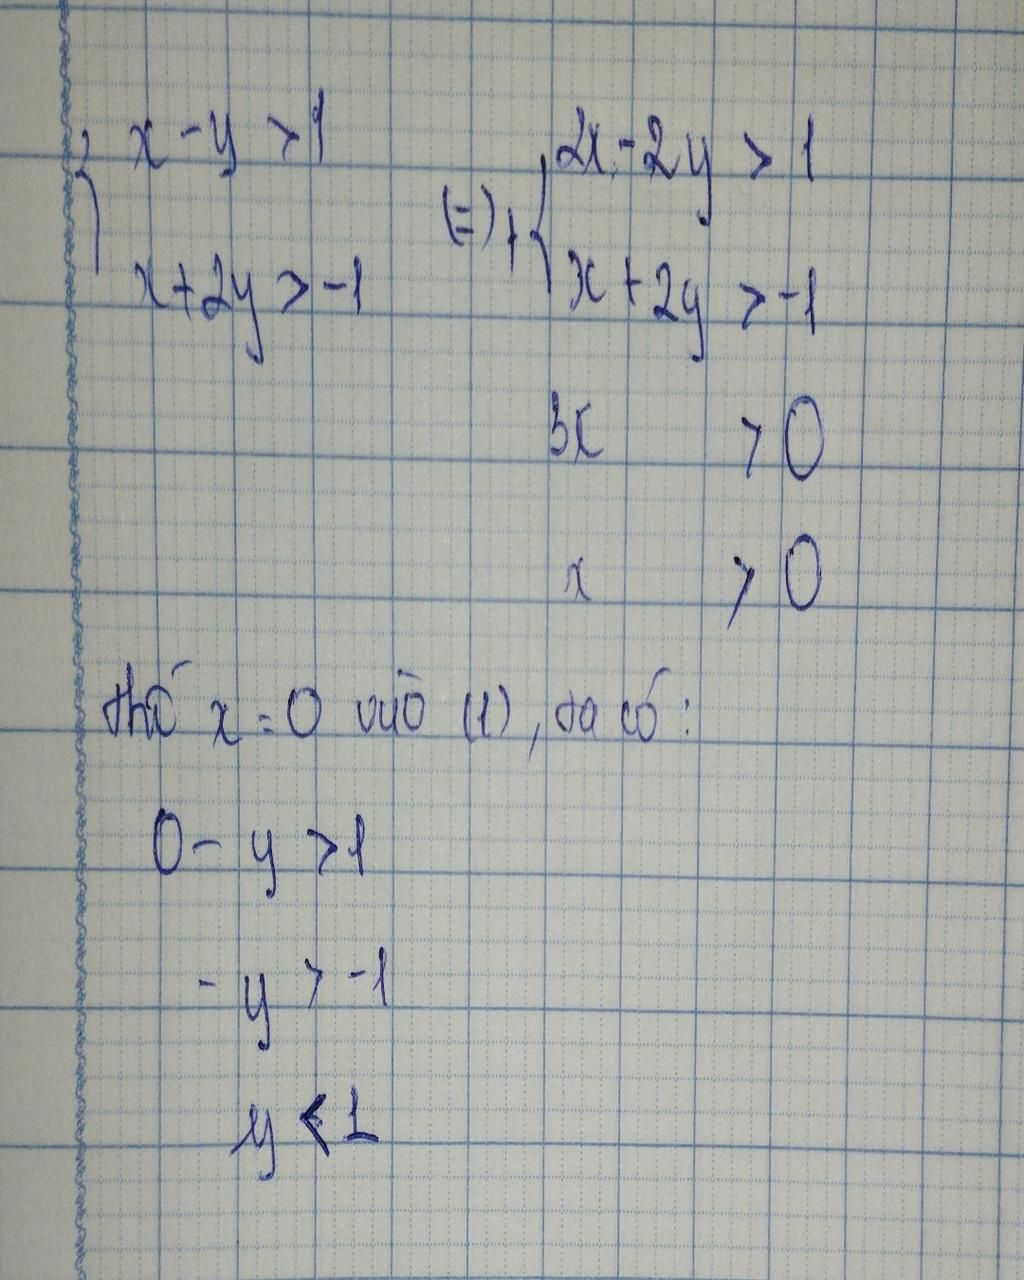 x - y > 1 (=) + 2x - 2y > 1
x + 2y > -1 x + 2y > -1
3x > 0
x > 0
thế x = 0 vào (1), ta có:
0 - y > 1
- y > -1
y < 1